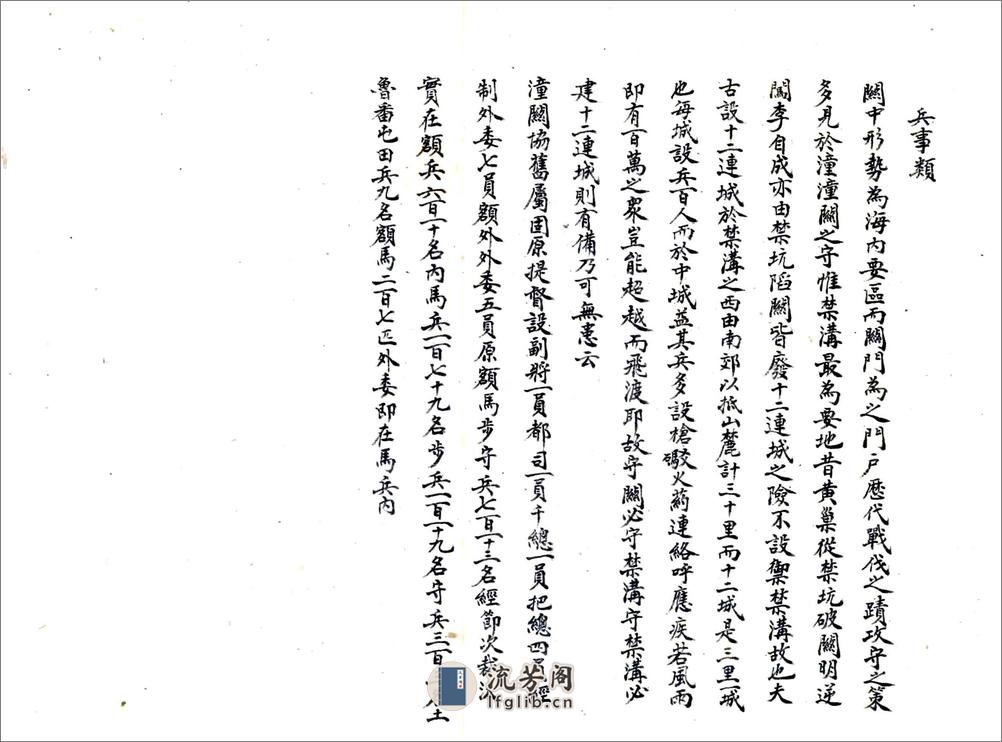 兵事類
關中形勢為海內要區而關門為之門戶歷代戰伐之蹟攻守之策
多見於潼潼關之守惟禁溝最為要地昔黃巢從禁坑破關明逆
闖李自成亦由禁坑陷關皆廢十二連城之險不設禦禁溝故也夫
古設十二連城於禁溝之西由南郊以抵山麓計三十里而十二城是三里一城
也每城設兵百人而於中城益其兵多設槍礮火葯連絡呼應疾若風雨
即有百萬之衆豈能超越而飛渡耶故守關必守禁溝守禁溝必
建十二連城則有備乃可無患云
潼關協舊屬固原提督設副將一員都司一員千總一員把總四員經
制外委七員額外外委五員原額馬步守兵七百十三名經節次裁汰
實在額兵六百一十名內馬兵一百七十九名步兵一百一十九名守兵三百
魯番屯田兵九名額馬二百七匹外委即在馬兵內
流芳阁
lfglib.cn